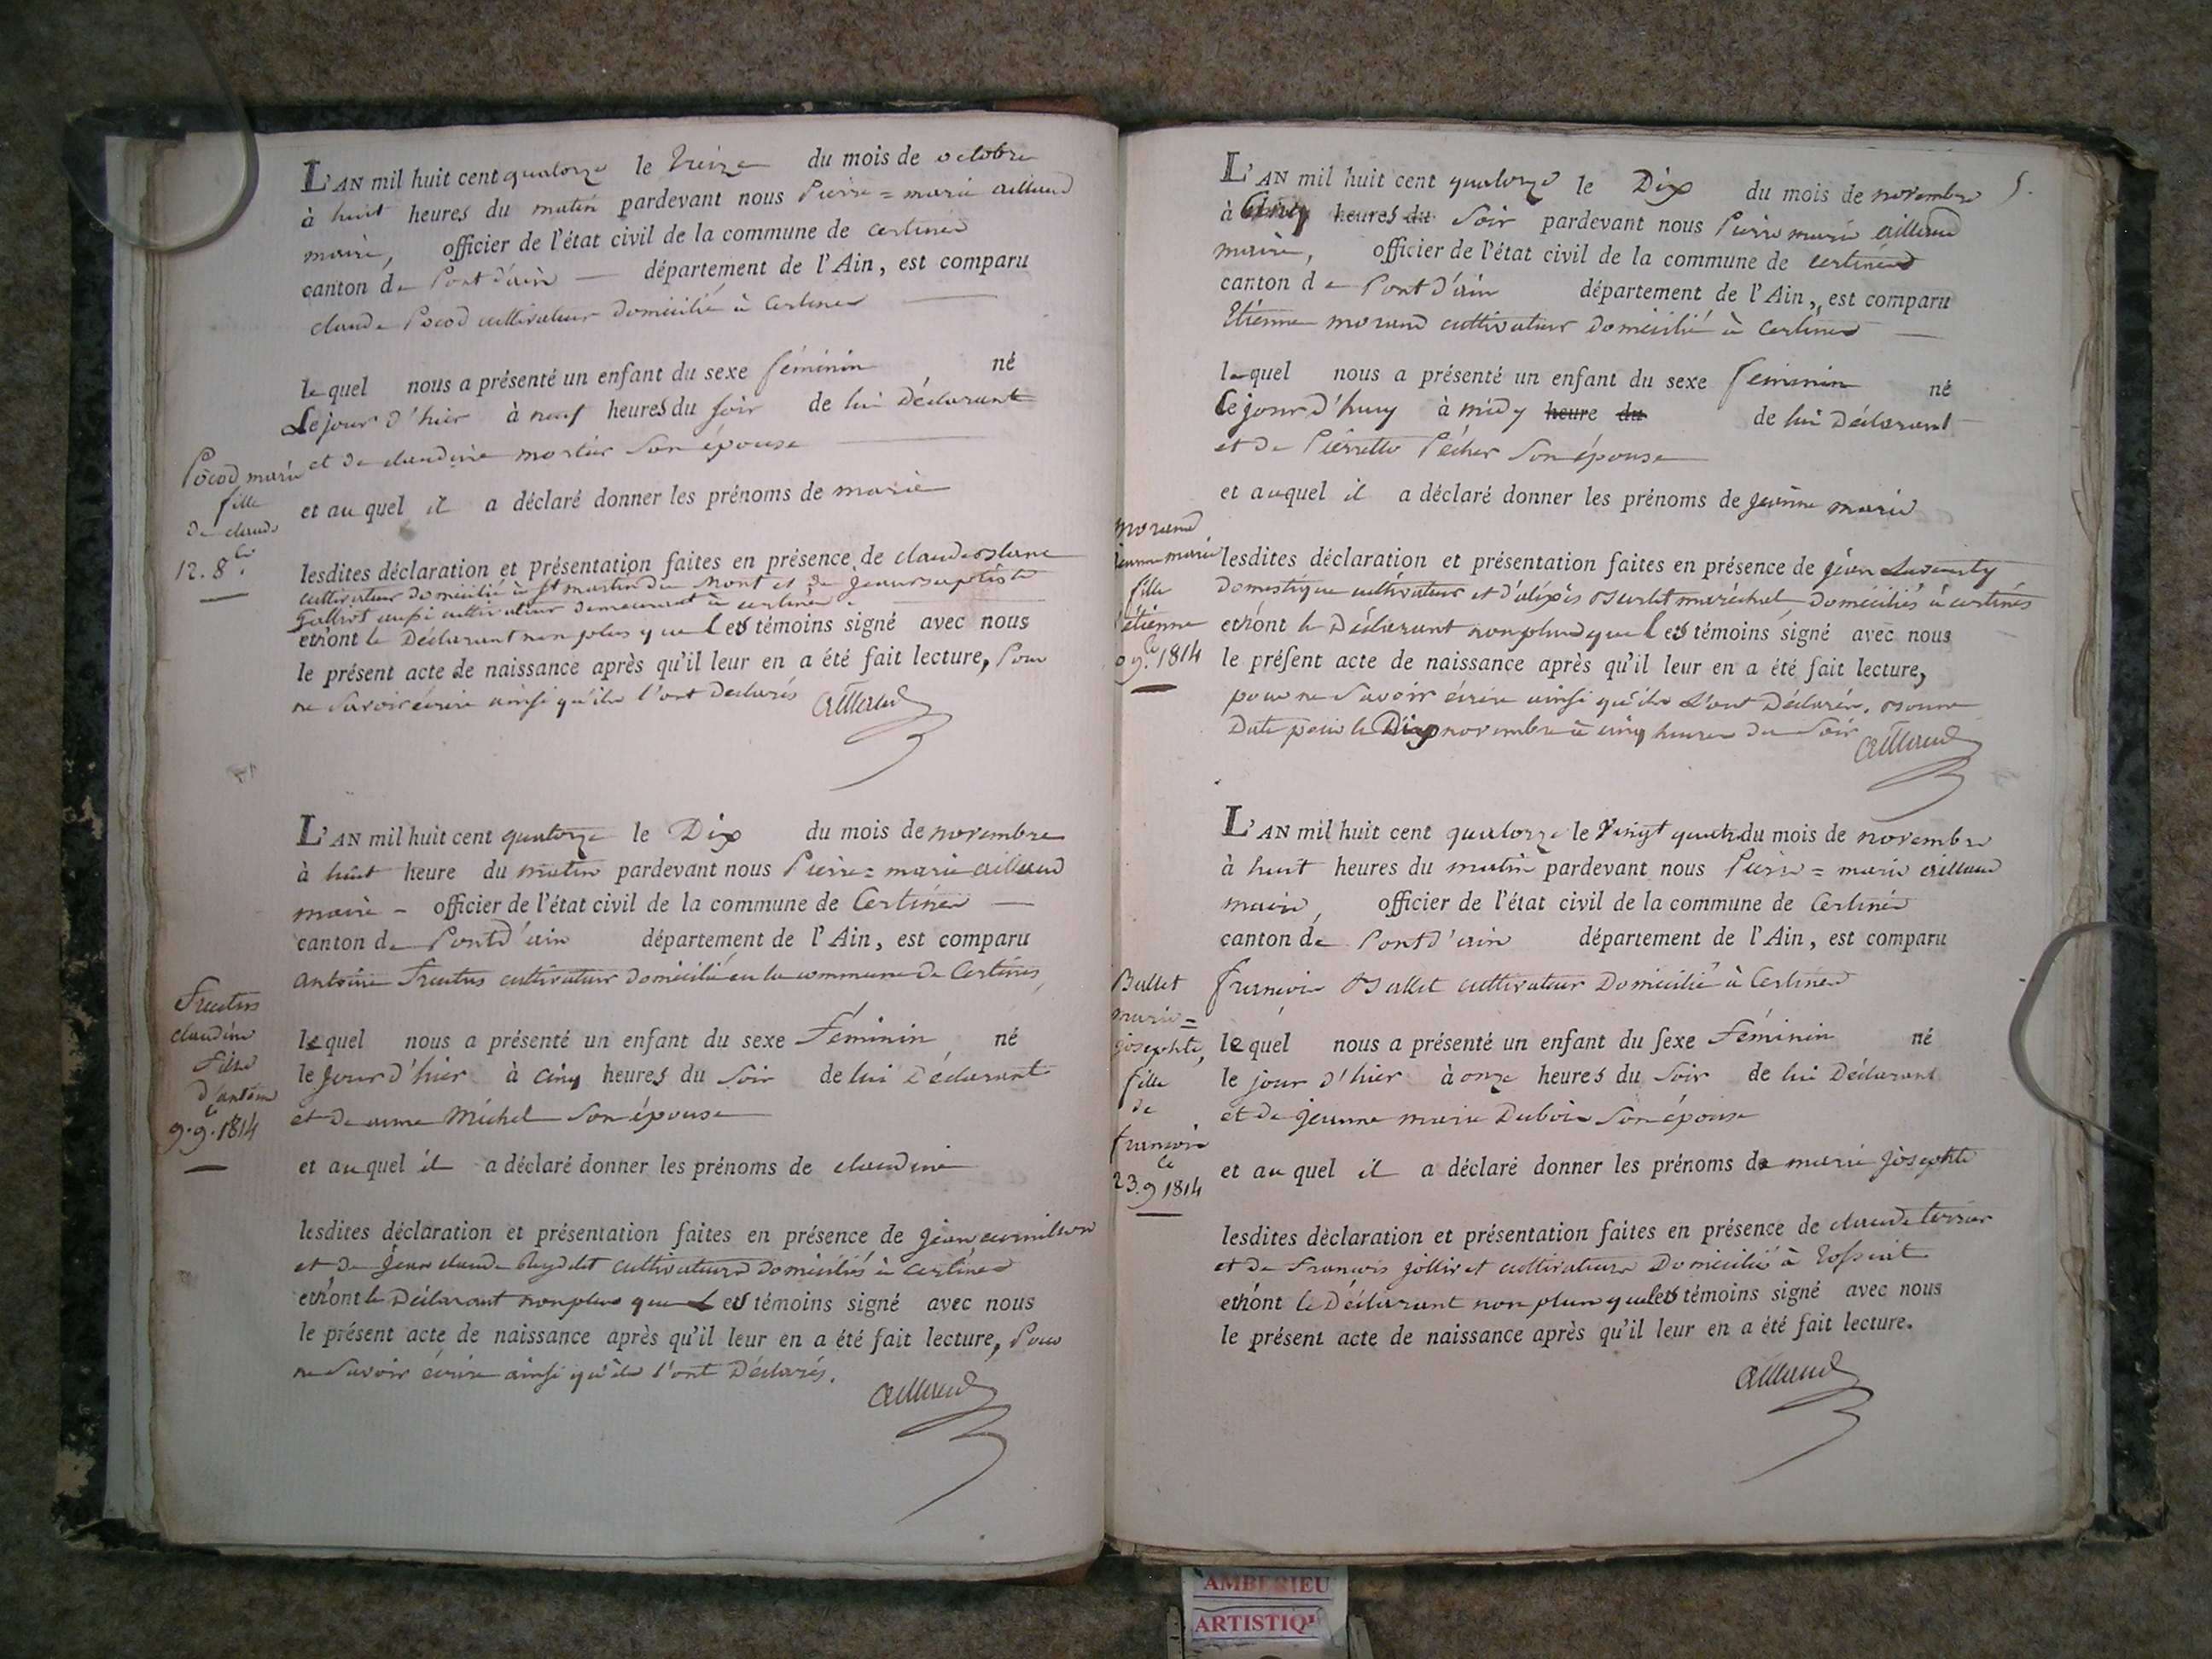 L'AN mil huit cent quatorze le treize du mois de octobre
à huit heures du matin pardevant nous Pierre = marie aillaud
maire, officier de l'état civil de la commune de certines
canton de Pont d'ain département de l'Ain, est comparu
claude Pocod cultivateur domicilié à Certines
lequel nous a présenté un enfant du sexe féminin né
Le jour d'hier à neuf heures du soir de lui Déclarant
et de claudine mortier son épouse
et auquel il a déclaré donner les prénoms de marie
Pocod marie
fille
de claude
12. 8.bre
lesdites déclaration et présentation faites en présence de claude
cultivateur domicilié à St martin du mont et de jean baptiste
aussi cultivateur demeurant à certines.
et n'ont le Déclarant non plus que Les témoins signé avec nous
le présent acte de naissance après qu'il leur en a été fait lecture, Pour
ne savoir écrire ainsi qu'ils l'ont declarés aillaud
L'AN mil huit cent quatorze le Dix du mois de novembre
à huit heure du matin pardevant nous Pierre = marie aillaud
maire - officier de l'état civil de la commune de Certines
canton de Pont d'ain département de l'Ain, est comparu
antoine Fructus cultivateur domicilié en la commune de Certines,
lequel nous a présenté un enfant du sexe Féminin, né
le jour d'hier à cinq heures du soir de lui Déclarant
et de anne Michel son épouse
et auquel il a déclaré donner les prénoms de claudine
Fructus
claudine
Fille
d'antoine
9. 9.bre 1814
lesdites déclaration et présentation faites en présence de jean
et de jean claude Reydelet cultivateurs domiciliés à certines
et n'ont le Déclarant non plus que Les témoins signé avec nous
le présent acte de naissance après qu'il leur en a été fait lecture, Pour
ne savoir écrire ainsi qu'ils l'ont Déclarés.
aillaud
5.
L'AN mil huit cent quatorze le Dix du mois de novembre
à Cinq heures du soir pardevant nous Pierre marie aillaud
maire, officier de l'état civil de la commune de certines
canton de Pont d'ain département de l'Ain, est comparu
Etienne morand cultivateur domicilié à certines
lequel nous a présenté un enfant du sexe féminin né
le jour d'huy à midy heure du de lui Déclarant
et de Pierrette Pécher son épouse
et auquel il a déclaré donner les prénoms de jeanne marie
morand
jeanne marie
fille
étienne
9.bre 1814
lesdites déclaration et présentation faites en présence de jean
domestique cultivateur et d'aléxis maréchal, domiciliés à certines
et n'ont le Déclarant non plus que Les témoins signé avec nous
le présent acte de naissance après qu'il leur en a été fait lecture,
pour ne savoir écrire ainsi qu'ils l'ont Déclarés. Bonne
Date pour le Dix novembre à cinq heures du soir aillaud
L'AN mil huit cent quatorze le Vingt quatre du mois de novembre
à huit heures du matin pardevant nous Pierre = marie aillaud
maire, officier de l'état civil de la commune de Certines
canton de Pont d'ain département de l'Ain, est comparu
françois Ballet cultivateur Domicilié à Certines
lequel nous a présenté un enfant du sexe Féminin né
le jour d'hier à onze heures du soir de lui Déclarant
et de jeanne marie Dubois son épouse
et auquel il a déclaré donner les prénoms de marie josephte
Ballet
marie =
josephte,
fille
de
francois
23. 9bre 1814
lesdites déclaration et présentation faites en présence de claude terrier
et de François cultivateurs Domiciliés à Tossiat
et n'ont le Déclarant non plus que les témoins signé avec nous
le présent acte de naissance après qu'il leur en a été fait lecture.
aillaud
AMBERIEU
ARTISTIQU